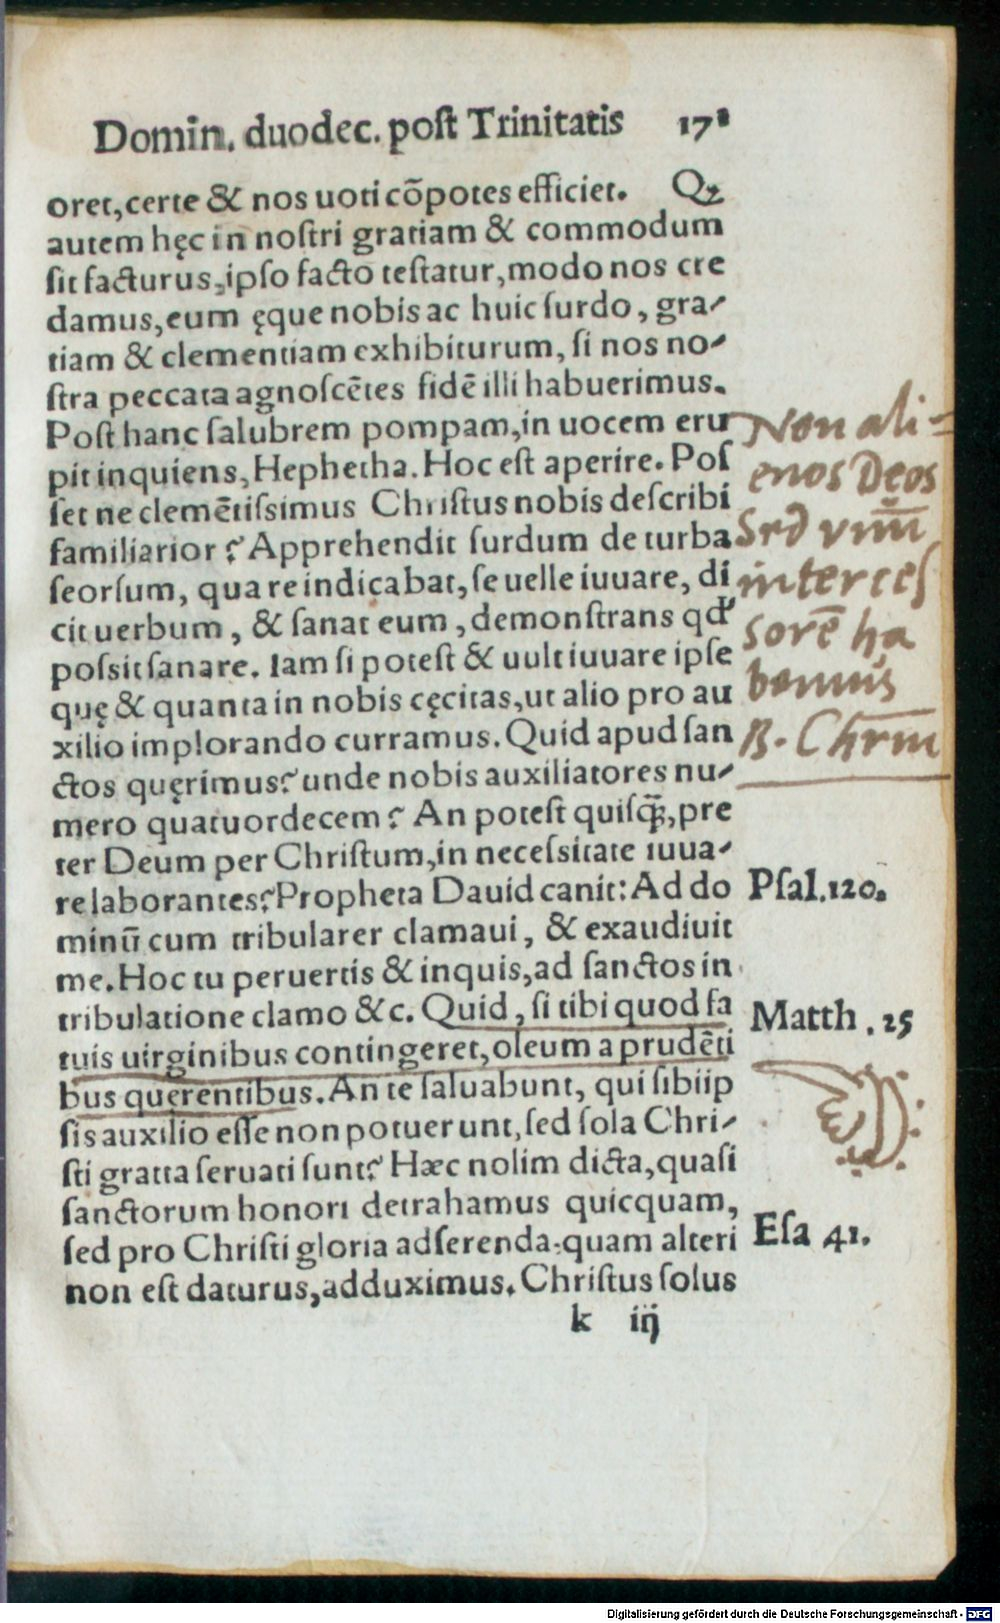 Domin. duodec. post Trinitatis 178
oret, certe & nos uoti cōpotes efficiet. Qꝫ
autem hęc in nostri gratiam & commodum
sit facturus, ipso facto testatur, modo nos cre
damus, eum ęque nobis ac huic surdo, gra-
tiam & clementiam exhibiturum, si nos no-
stra peccata agnoscētes fidē illi habuerimus.
Post hanc salubrem pompam, in uocem eru
pit inquiens, Hephetha. Hoc est aperire. Pos
set ne clemētissimus Christus nobis describi
familiarior? Apprehendit surdum de turba
seorsum, qua re indicabat, se uelle iuuare, di
cit uerbum, & sanat eum, demonstrans qđ
possit sanare. Iam si potest & uult iuuare ipse
quę & quanta in nobis cęcitas, ut alio pro au
xilio implorando curramus. Quid apud san
ctos quęrimus? unde nobis auxiliatores nu-
mero quatuordecem? An potest quisꝗ̃, pre
ter Deum per Christum, in necessitate iuua-
re laborantes? Propheta Dauid canit: Ad do
minū cum tribularer clamaui, & exaudiuit
me. Hoc tu peruertis & inquis, ad sanctos in
tribulatione clamo &c. Quid, si tibi quod fa
tuis uirginibus contingeret, oleum a prudēti
bus querentibus. An te saluabunt, qui sibiip
sis auxilio esse non potuerunt, sed sola Chri-
sti gratia seruati sunt? Hæc nolim dicta, quasi
sanctorum honori detrahamus quicquam,
sed pro Christi gloria adserenda, quam alteri
non est daturus, adduximus. Christus solus
k iij
Non ali=
enos Deos
Sed vnū
interces
sorē ha
bemus
Chrm
Psal. 120.
Matth. 25
Esa 41.
Digitalisierung gefördert durch die Deutsche Forschungsgemeinschaft - DFG